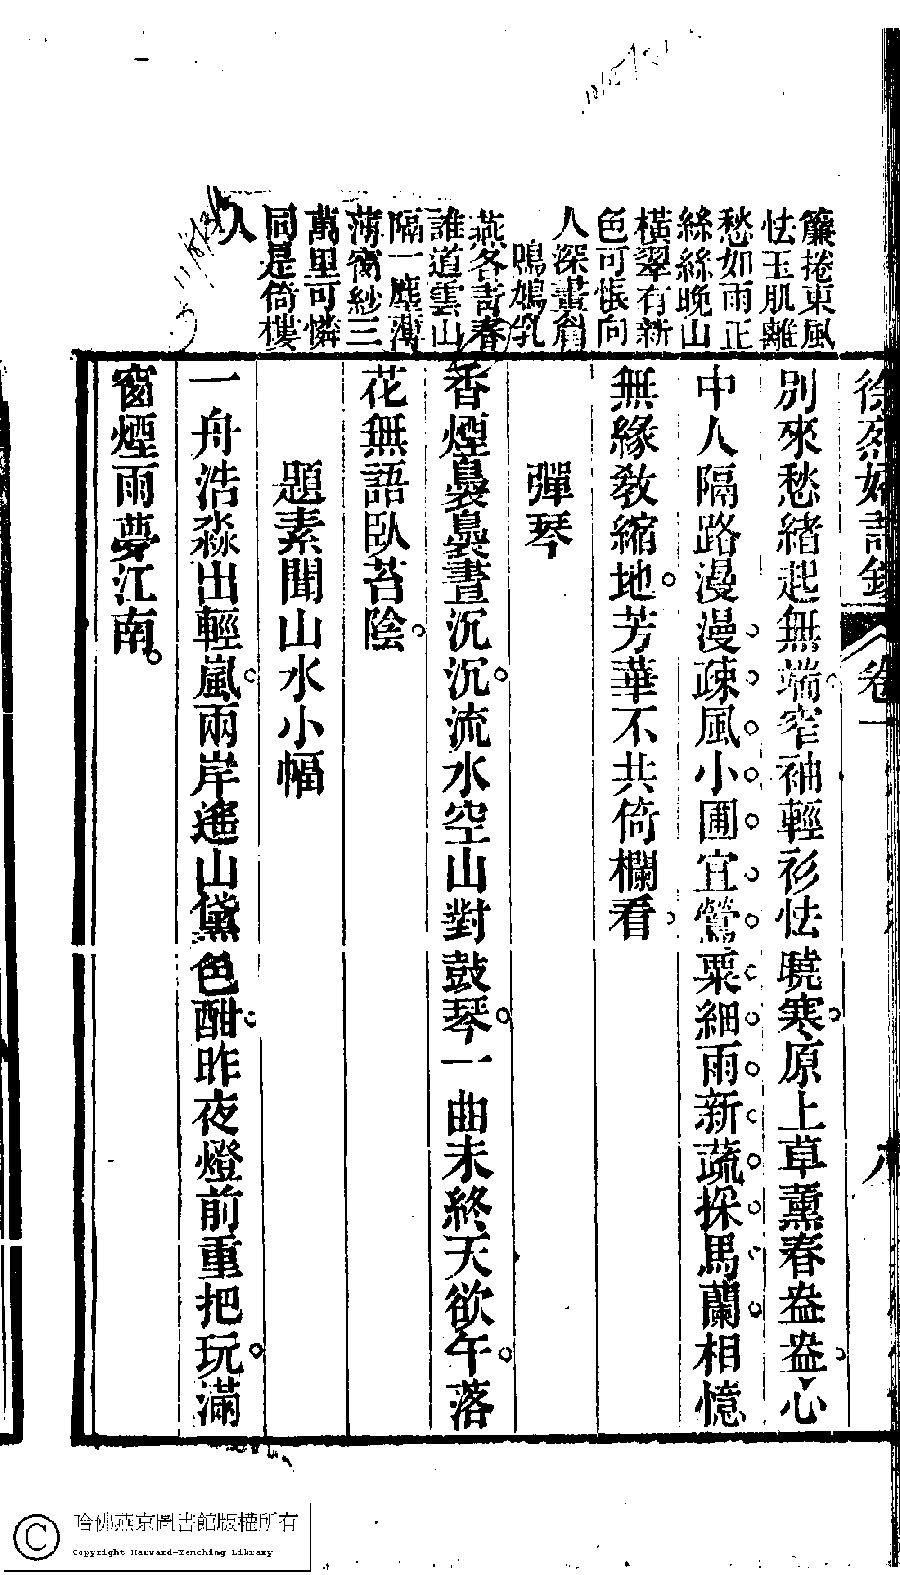 簾捲東風
怯玉肌離
愁如雨正
絲絲晚山
橫翠有新
色可悵向
人深畫眉
鳴鳩乳
燕各青春
誰道雲山
隔一塵薄
薄窗紗三
萬里可憐
同是倚樓
人
卷一
別來愁緒起無端。窄袖輕衫怯曉寒。原上草薰春盎盎。心
中人隔路漫漫。疎風小圃宜鶯粟。細雨新蔬採馬蘭。相憶
無緣教縮地。芳華不共倚欄看。
彈琴
香煙裊裊晝沉沉。流水空山對鼓琴。一曲未終天欲午。落
花無語臥苔陰。
題素聞山水小幅
一舟浩淼出輕嵐。兩岸遙山黛色酣。昨夜燈前重把玩。滿
窗煙雨夢江南。
哈佛燕京圖書館版權所有
Copyright Harvard-Yenching Library